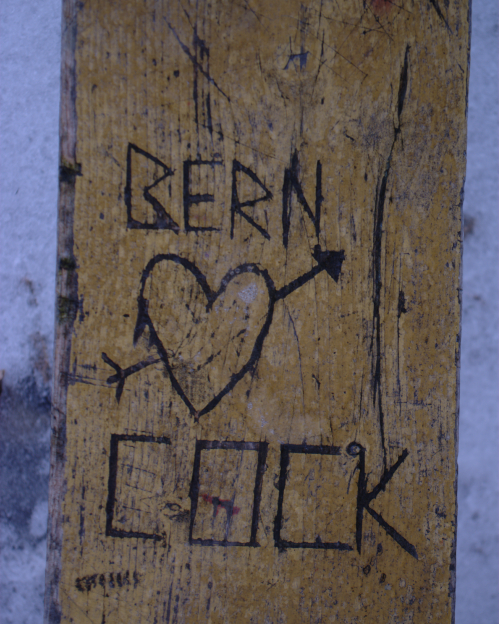 BERN
COCK